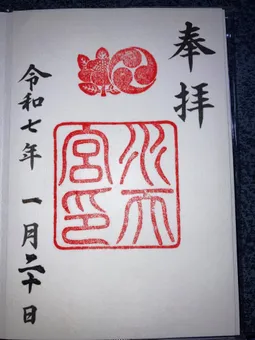 奉拝
水天宮印
令和七年 一月二十日